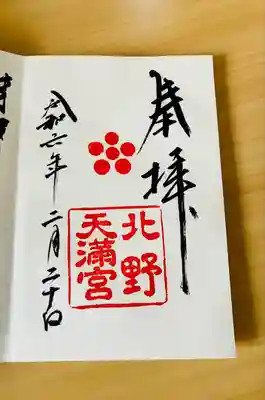 奉拝
北野
天満宮
令和六年二月二十日